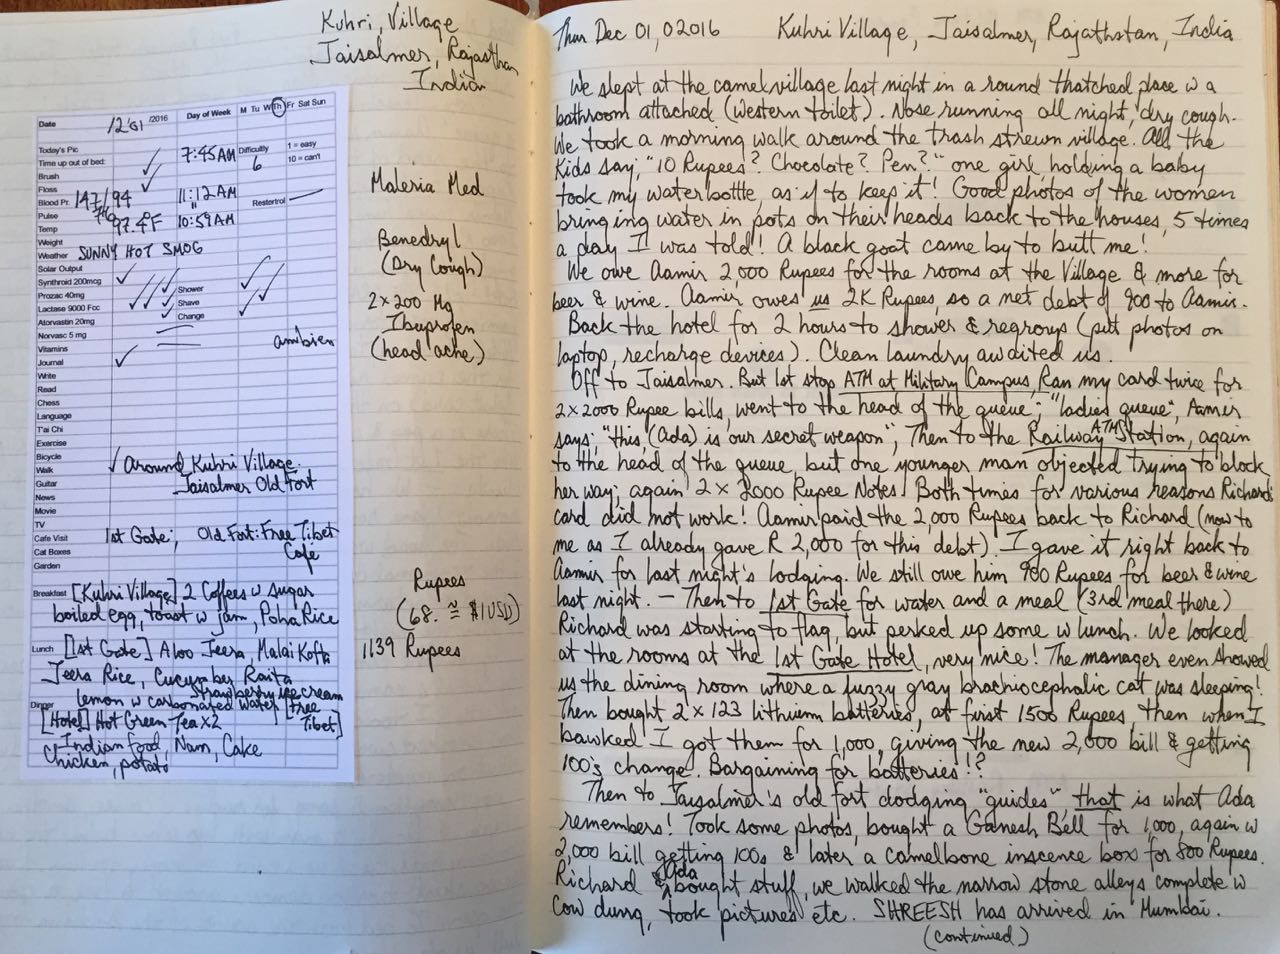 Kuhri, Village
Jaisalmer, Rajasthan
India
Date 12/01/2016 Day of Week M Tu W Th Fr Sat Sun
Today's Pic
Time up out of bed: 7:45AM Difficulty 6 1 = easy 10 = can't
Brush
Floss
Blood Pr. 147/94 11:12AM
Pulse " Restertrol
Temp 97.4°F 10:59AM
Weight
Weather SUNNY HOT SMOG
Solar Output
Synthroid 200mcg Shower
Prozac 40mg Shave
Lactase 9000 Fcc Change
Atorvastin 20mg
Norvasc 5 mg ambien
Vitamins
Journal
Write
Read
Chess
Language
T'ai Chi
Exercise
Bicycle
Walk Around Kuhri Village
Guitar Jaisalmer Old Fort
News
Movie
TV
Cafe Visit 1st Gate; Old Fort: Free Tibet
Cat Boxes Café
Garden
Breakfast [Kuhri Village] 2 Coffees w sugar
boiled egg, toast w jam, Poha Rice
Lunch [1st Gate] Aloo Jeera, Malai Kofta
Jeera Rice, Cucumber Raita
lemon w carbonated water strawberry ice cream [free Tibet]
Dinner
[Hotel] Hot Green Tea x2
Indian food, Nam, Cake
Chicken, potato
Maleria Med
Benedryl
(Dry Cough)
2x200 Mg
Ibuprofen
(head ache)
Rupees
(68. ≅ $1 USD)
1139 Rupees
Thur Dec 01, 02016 Kuhri Village, Jaisalmer, Rajathstan, India
We slept at the camel village last night in a round thatched place w a
bathroom attached (Western toilet). Nose running all night, dry cough.
We took a morning walk around the trash strewn village. All the
Kids say, "10 Rupees? Chocolate? Pen?" one girl, holding a baby
took my waterbottle, as if to keep it! Good photos of the women
bringing water in pots on their heads back to the houses, 5 times
a day I was told! A black goat came by to butt me!
We owe Aamir 2,000 Rupees for the rooms at the Village & more for
beer & wine. Aamir owes us 2K Rupees, so a net debt of 900 to Aamir.
Back the hotel for 2 hours to shower & regroup (put photos on
laptop, recharge devices). Clean laundry awaited us.
Off to Jaisalmer. But 1st stop ATM at Military Campus, Ran my card twice for
2x2000 Rupee bills, went to the head of the queue; "ladies queue", Aamir
says; "this (Ada) is our secret weapon"; Then to the Railway ATM Station, again
to the head of the queue, but one younger man objected trying to block
her way; again 2x2000 Rupee Notes. Both times for various reasons Richard's
card did not work! Aamir paid the 2,000 Rupees back to Richard (now to
me as I already gave R 2,000 for this debt). I gave it right back to
Aamir for last night's lodging. We still owe him 900 Rupees for beer & wine
last night. — Then to 1st Gate for water and a meal (3rd meal there)
Richard was starting to flag, but perked up some w lunch. We looked
at the rooms at the 1st Gate Hotel, very nice! The manager even showed
us the dining room where a fuzzy gray brachiocephalic cat was sleeping!
Then bought 2 x 123 lithium batteries, at first 1500 Rupees, then when I
bawked I got them for 1,000, giving the new 2,000 bill & getting
100's change. Bargaining for batteries!?
Then to Jaisalmer's old fort dodging "guides", that is what Ada
remembers! Took some photos, bought a Ganesh Bell for 1,000, again w
2,000 bill getting 100s & later a camelbone inscence box for 800 Rupees.
Richard & Ada bought stuff, we walked the narrow stone alleys complete w
cow dung, took pictures etc. SHREESH has arrived in Mumbai.
(continued)